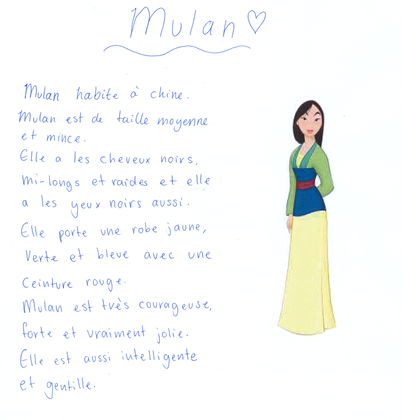 Mulan ♡
Mulan habite à chine.
Mulan est de taille moyenne
et mince.
Elle a les cheveux noirs,
mi-longs et raides et elle
a les yeux noirs aussi.
Elle porte une robe jaune,
Verte et bleue avec une
Ceinture rouge.
Mulan est très courageuse,
forte et vraiment jolie.
Elle est aussi intelligente
et gentille.